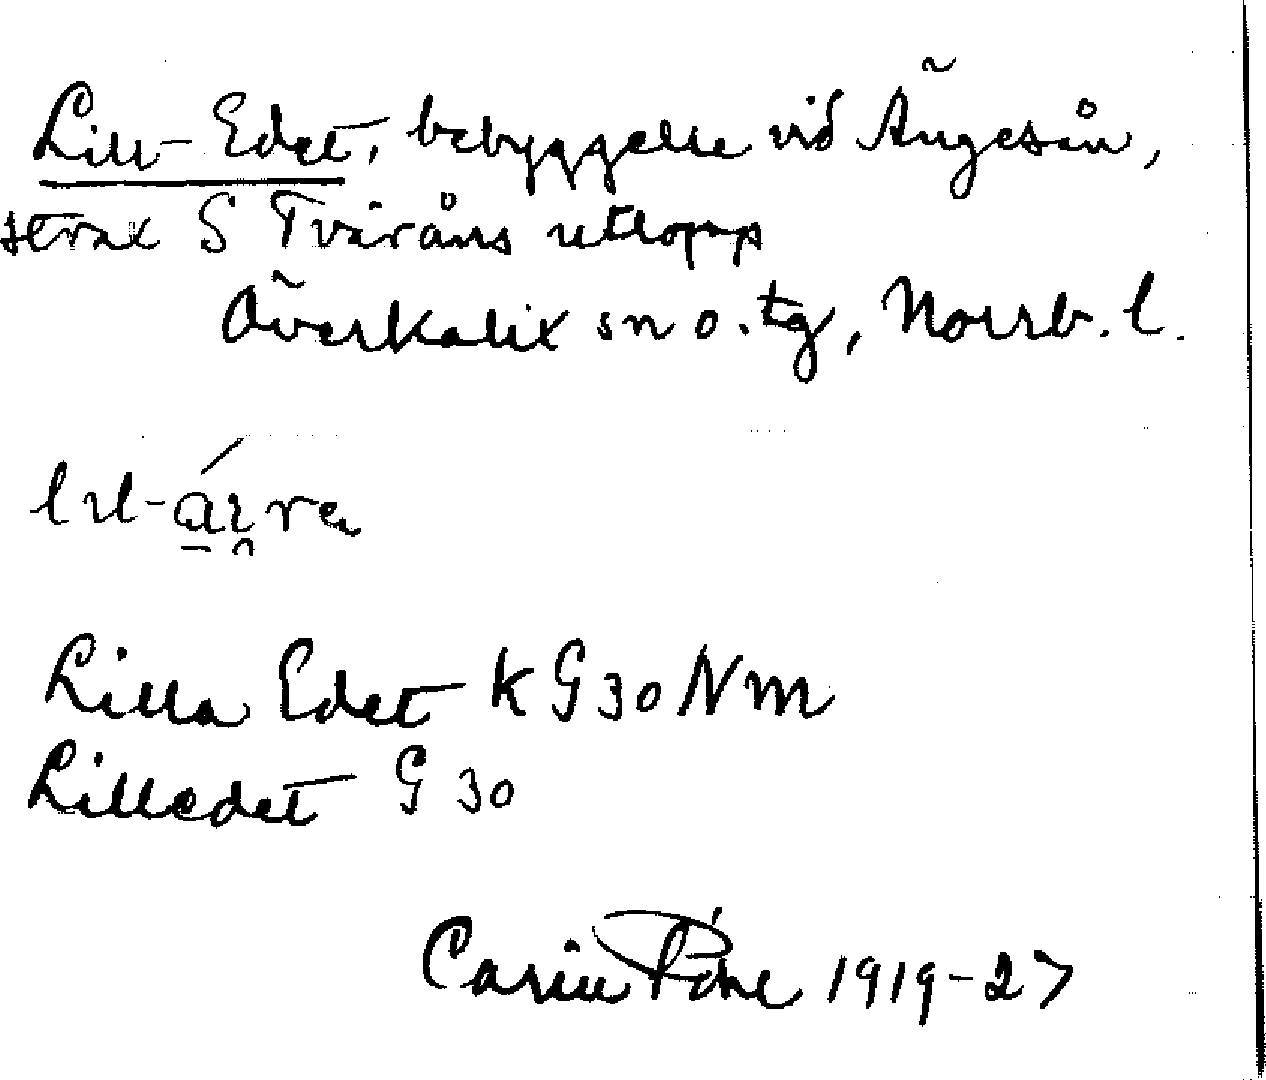 Lill-Edet, bebyggelse vid Ängesån,
strax S Tvåråns utlopp
Överkalix sn o. tg, Norrb. l.
Lilla Edet K G 30 N m
Lilledet G 30
Carin Pihl 1919-27